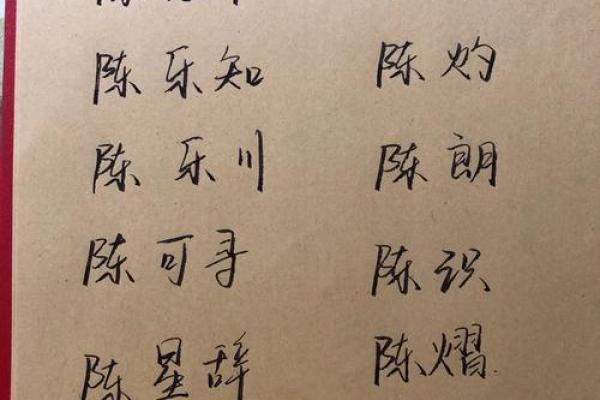 陈乐知
陈灼
陈乐川
陈朗
陈可寻
陈识
陈星辞
陈熠